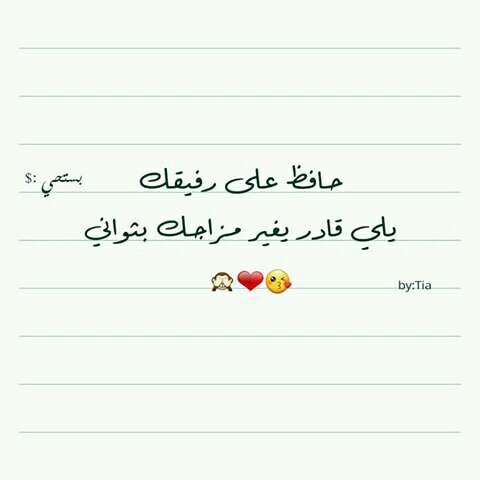 حافظ على رفيقك
بستحي :$
يلي قادر يغير مزاجك بثواني
😘❤️🙈
by:Tia